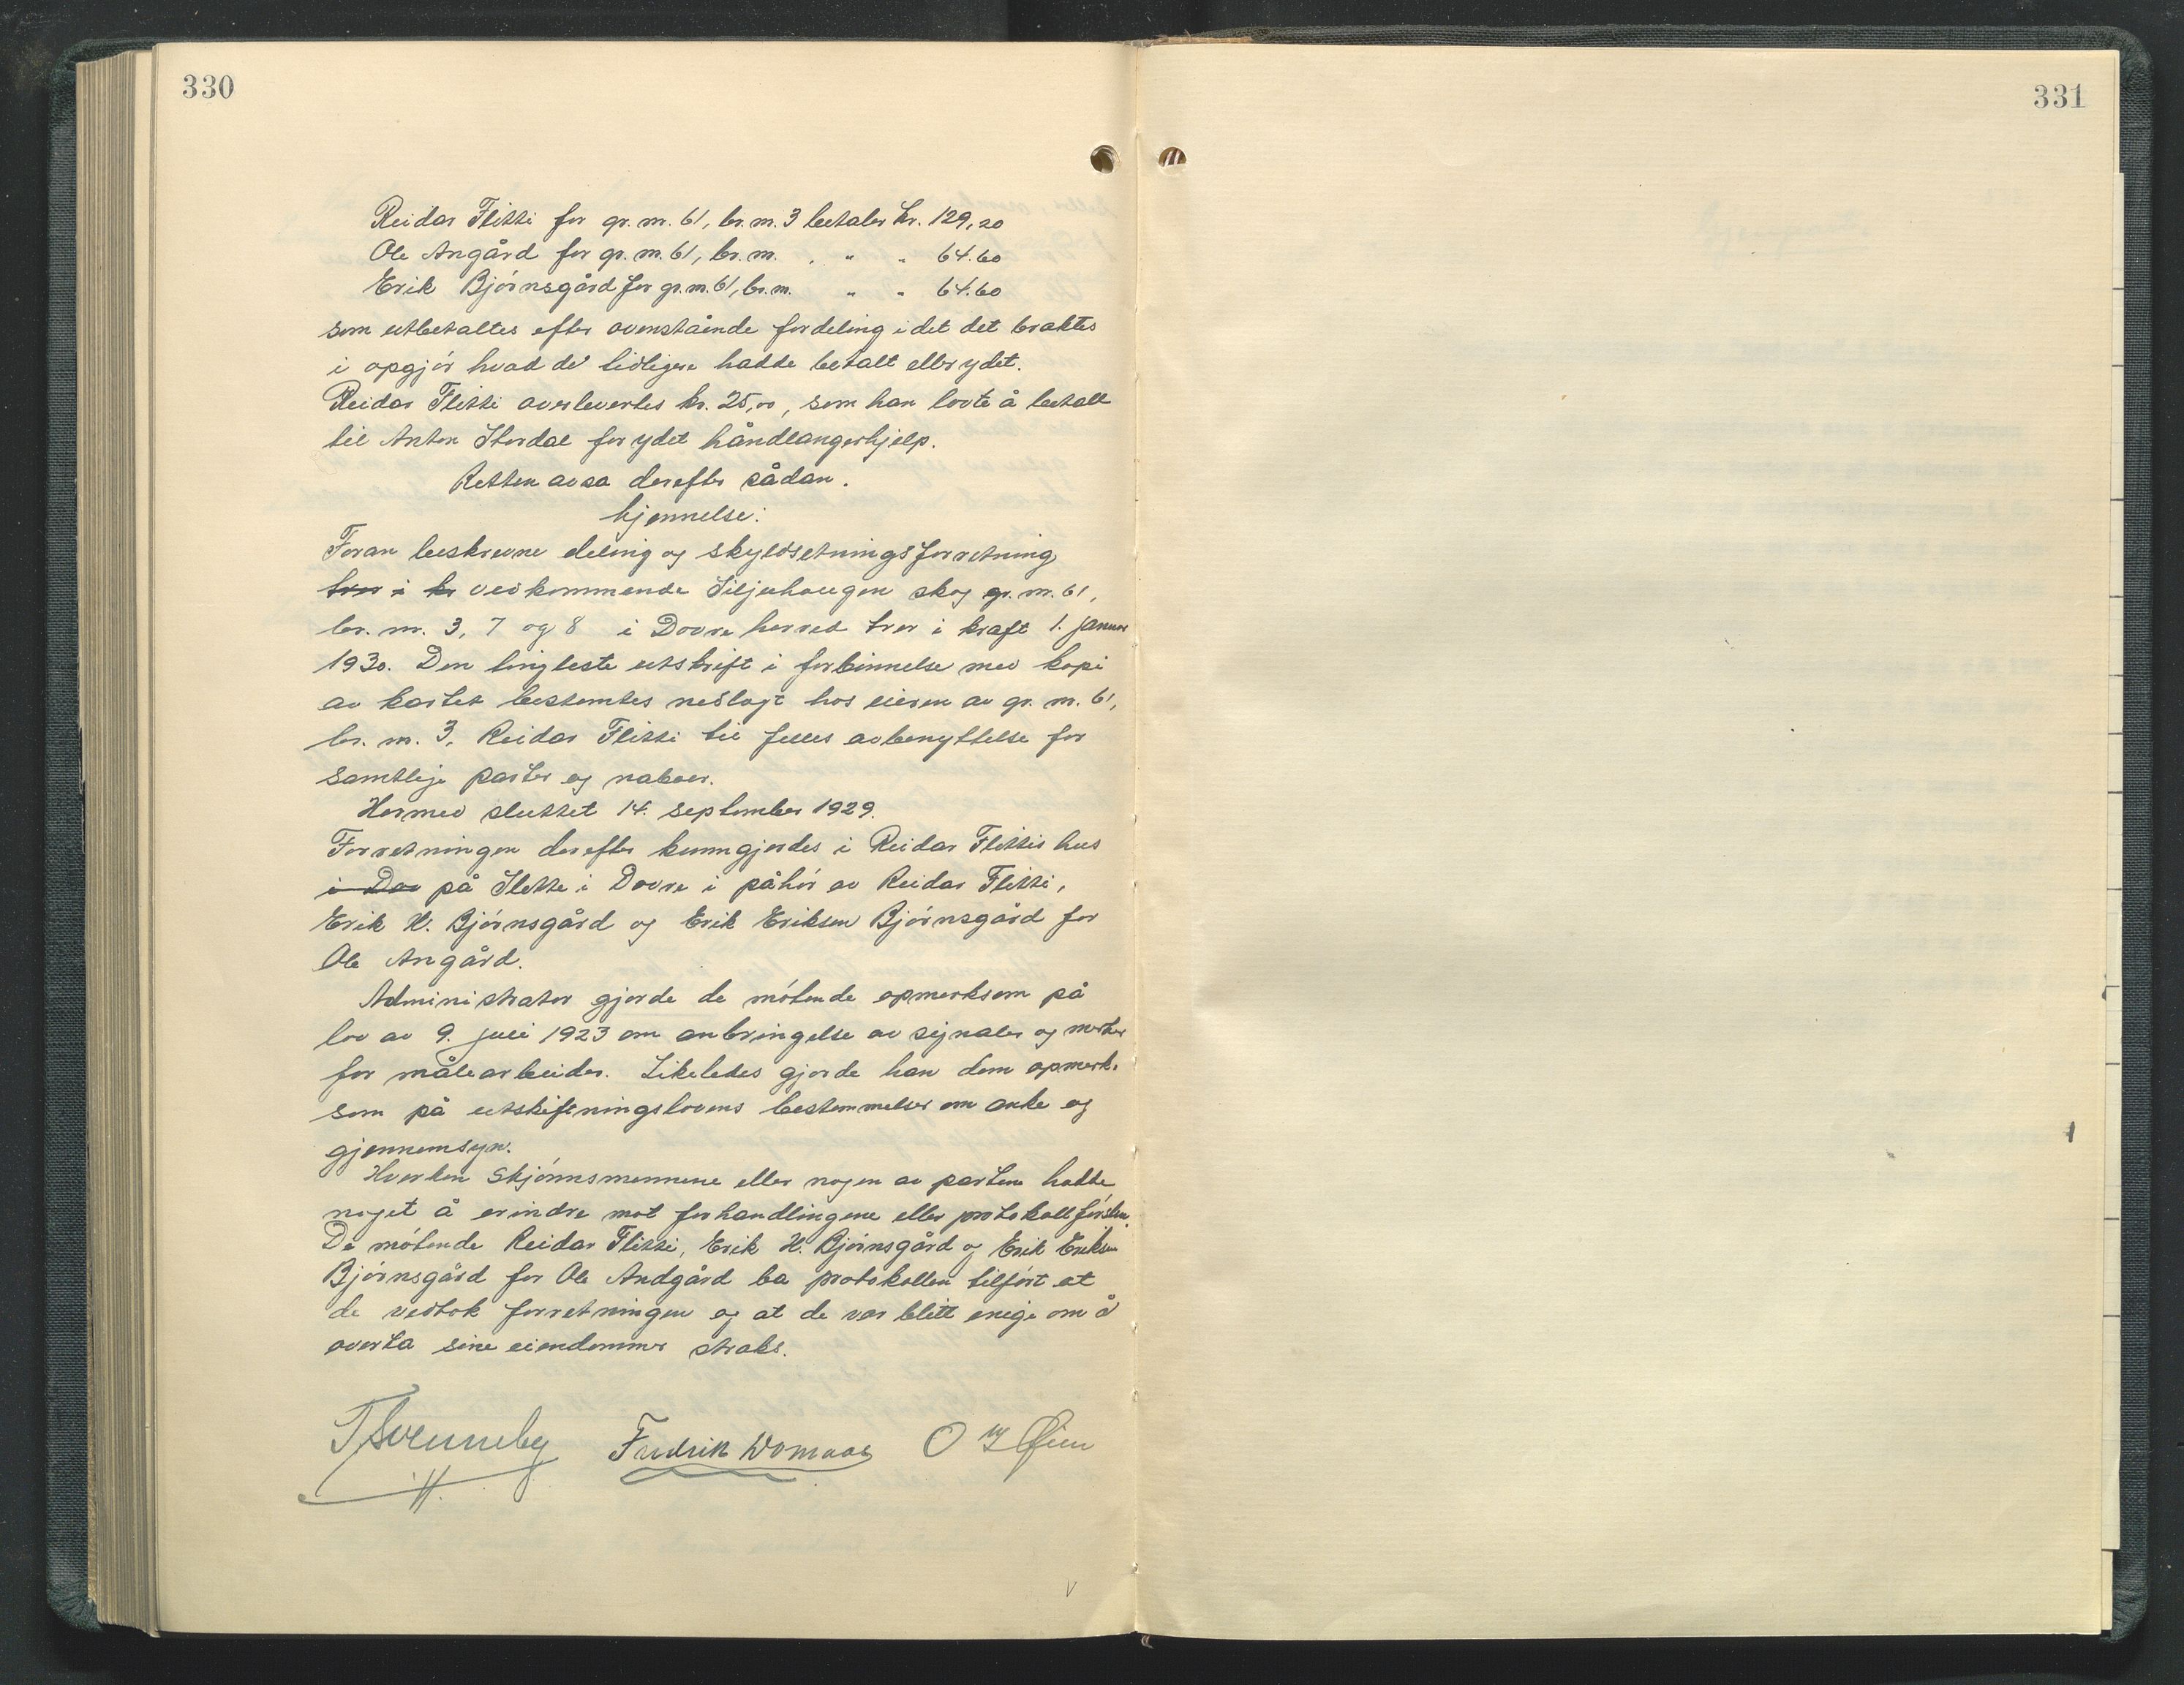 330
331
Reidar Flitti for gr. nr. 61, br. nr. 3 betaler kr. 129,20
Ole Angård for gr. nr. 61, br. nr. . " " 64.60
Erik Bjørnsgård for gr. nr. 61, br. nr. " " 64.60
som utbetaltes efter ovenstående fordeling idet det braktes
i opgjør hvad de tidligere hadde betalt eller ydet.
Reidar Flitti overlevertes kr. 25,00, som han lovte å betale
til Anton Stordal for ydet håndlangerhjelp.
Retten avsa derefter sådan.
kjennelse:
Foran beskrevne deling og skyldsetningsforretning
trer i kr vedkommende Siljuhaugen skog gr. nr. 61,
br. nr. 3, 7 og 8 i Dovre herred trer i kraft 1. januar
1930. Den tingleste utskrift i forbinnelse med kopi
av kartet bestemtes nedlagt hos eieren av gr. nr. 61,
br. nr. 3, Reidar Flitti til felles avbenyttelse for
samtlige parter og naboer.
Hermed sluttet 14. september 1929.
Forretningen derefter kunngjordes i Reidar Flittis hus
i Dov på Slette i Dovre i påhør av Reidar Flitti,
Erik H. Bjørnsgård og Erik Eriksen Bjørnsgård for
Ole Angård.
Administrator gjorde de møtende opmerksom på
lov av 9. juli 1923 om anbringelse av signaler og merker
for målearbeider. Likeledes gjorde han dem opmerk-
som på utskiftningslovens bestemmelser om anke og
gjennemsyn.
Hverken skjønnsmennene eller nogen av partene hadde
noget å erindre mot forhandlingene eller protokollførslen.
De møtende Reidar Flitti, Erik H. Bjørnsgård og Erik Eriksen
Bjørnsgård for Ole Andgård ba protokollen tilført at
de vedtok forretningen og at de var blitt enige om å
overta sine eiendommer straks.
T Svenneby Fredrik Domaas O Øien